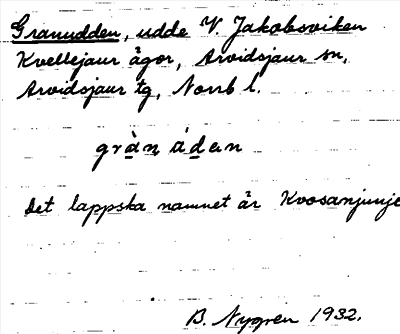 Granudden, udde V. Jakobsviken
Kvellejaur ägor, Arvidsjaur sn,
Arvidsjaur tg, Norrb l.
gràn áden
Det lappska namnet är Kvosanjunje
B. Nygren 1932.